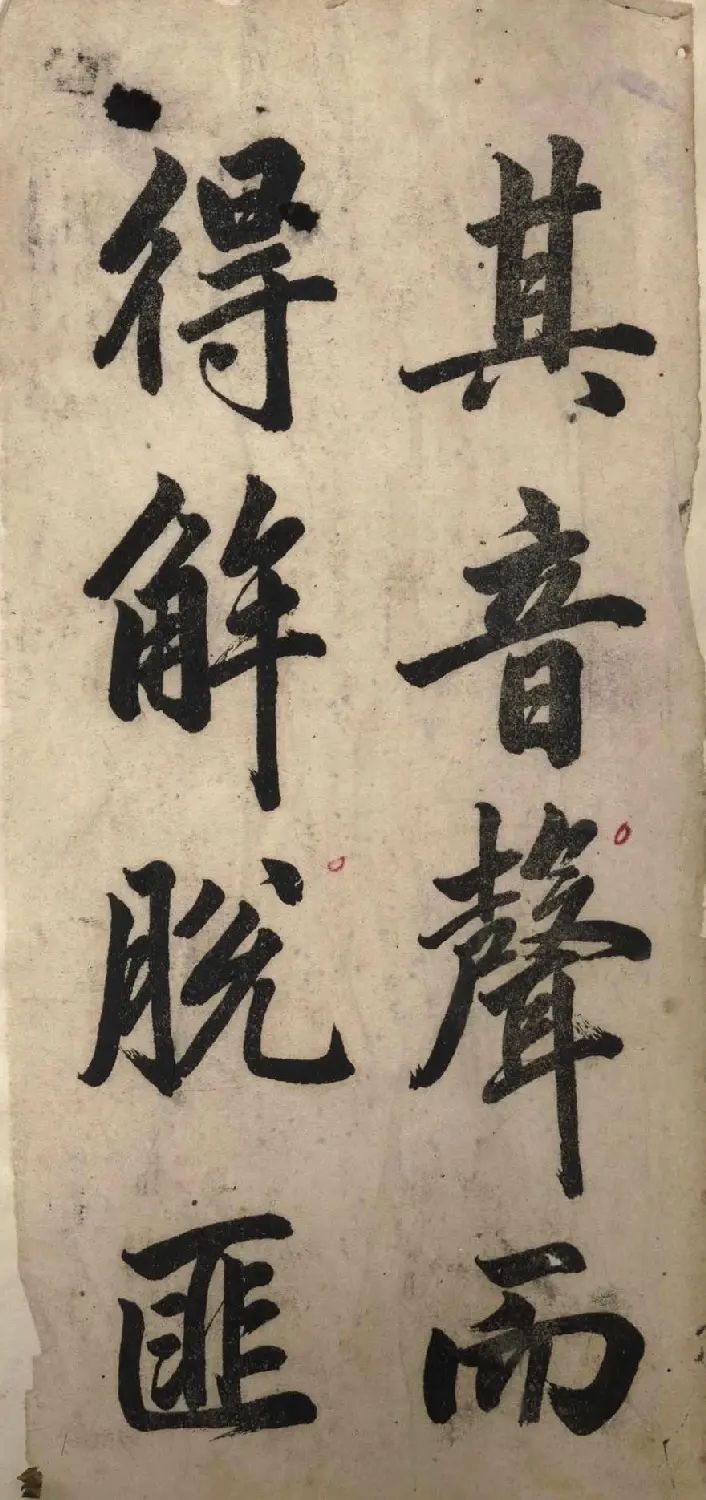 其音聲而
得解脫匪